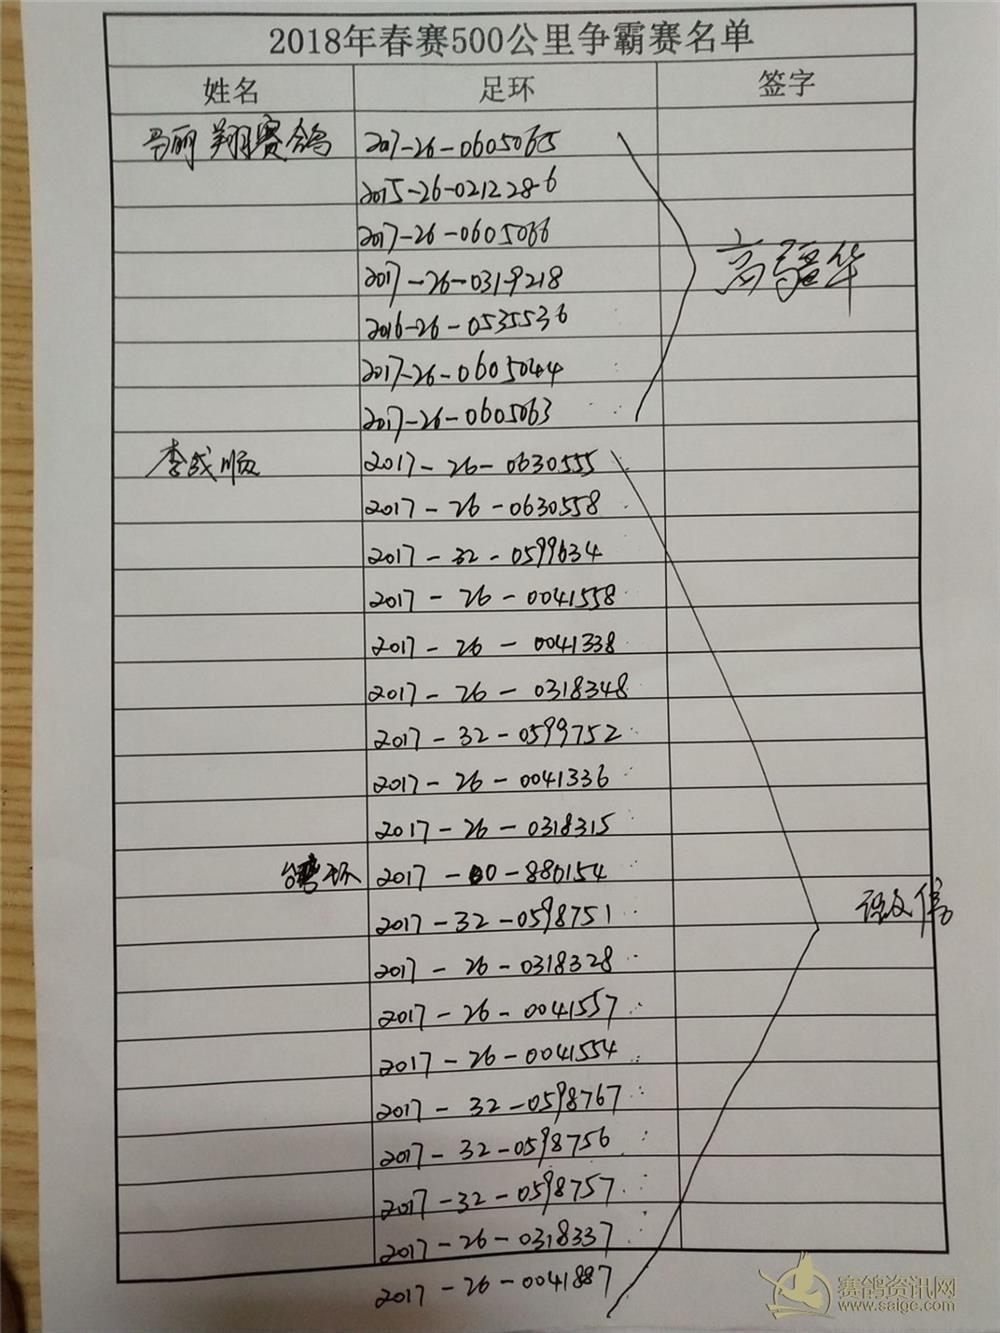 2018年春赛500公里争霸赛名单
姓名 足环 签字
马丽 翔赛鸽 2017-26-0605065
2015-26-0212286
2017-26-0605066
高疆华
2017-26-0319218
2016-26-0535536
2017-26-0605044
2017-26-0605063
李成顺 2017-26-0630555
2017-26-0630558
2017-32-0599634
2017-26-0041558
2017-26-0041338
2017-26-0318348
2017-32-0599752
2017-26-0041336
2017-26-0318315
台湾环 2017-00-880154
2017-32-0598751
2017-26-0318328
2017-26-0041557
2017-26-0041554
2017-32-0598767
2017-32-0598756
2017-32-0598757
2017-26-0318337
2017-26-0041887
赛鸽资讯网
www.saigc.com